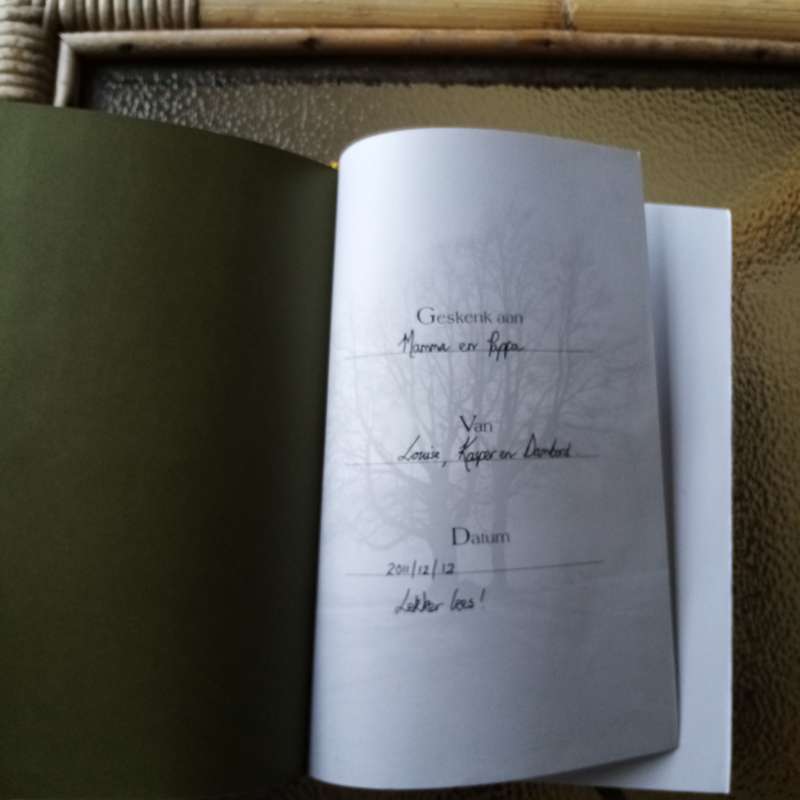 Geskenk aan
Mamma en Pappa
Van
Louise, Kasper en
Datum
2011/12/12
Lekker lees!